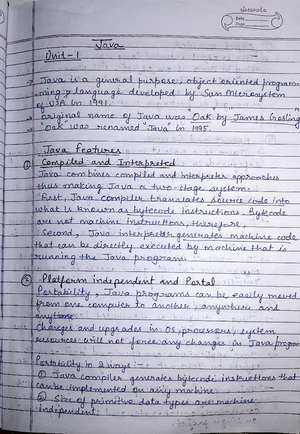 Date
Page
Java
Unit-1
→ Java is a general purpose, object oriented program-
ming language developed by Sun Microsystem
of USA in 1991.
→ original name of Java was "Oak" by James Gosling
→ Oak was renamed "Java" in 1995.
Java features
① Compiled and Interpreted
Java combines compiled and interpreter approaches
thus making Java a two-stage system.
First, Java compiler translates source code into
what is known as bytecode instructions. Bytecode
are not machine instructions, therefore
Second, Java interpreter generates machine code
that can be directly executed by machine that is
running the Java program.
② Platform independent and Portal
Portability, Java programs can be easily moved
from one computer to another, anywhere and
anytime.
Changes and upgrades in OS, processors, system
resources will not force any changes in Java program
Portability in 2 ways :-
① Java compiler generates bytecode instructions that
can be implemented on any machine
② Size of primitive data types are machine
independent.